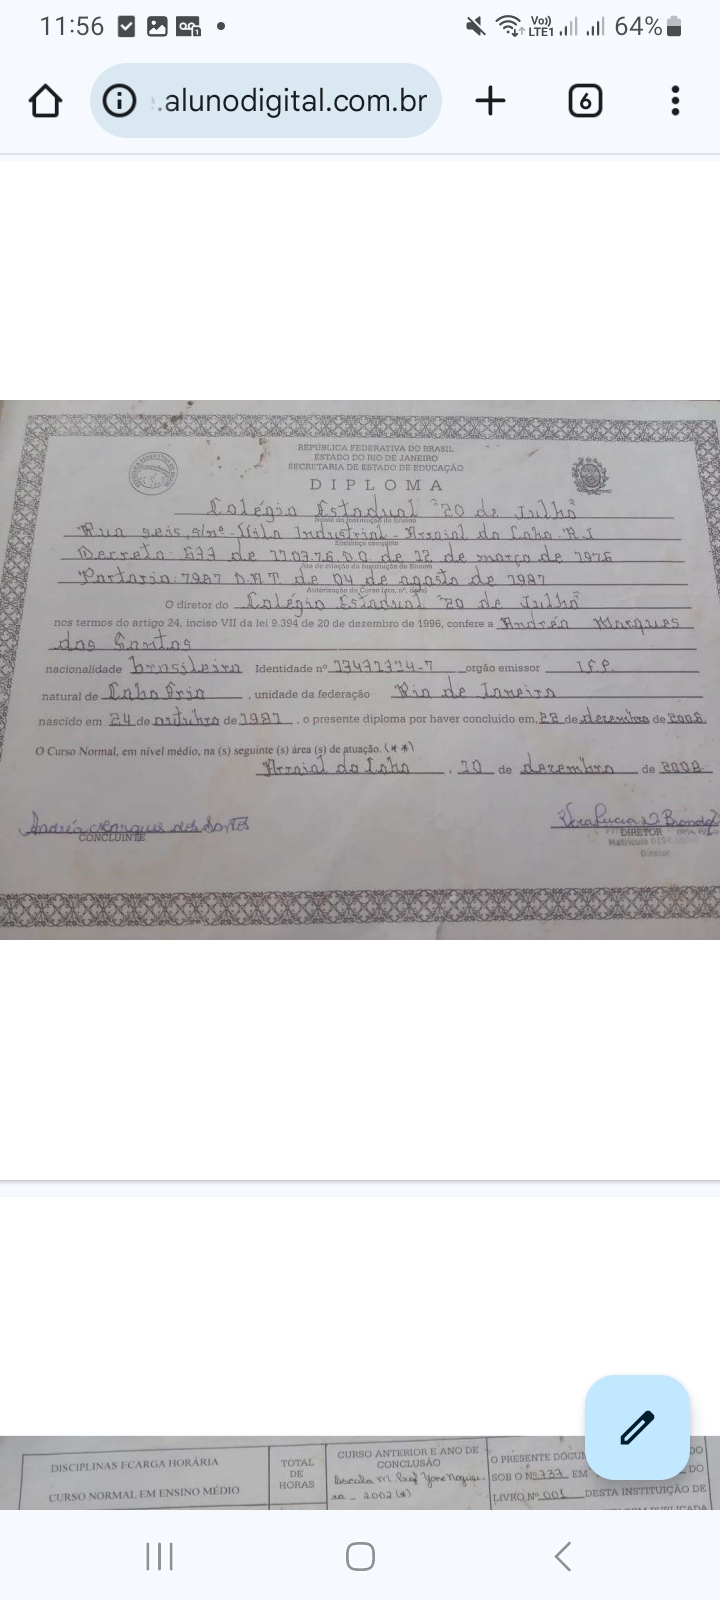 11:56
Vo))
LTE1
64%
.alunodigital.com.br
6
REPÚBLICA FEDERATIVA DO BRASIL
ESTADO DO RIO DE JANEIRO
SECRETARIA DE ESTADO DE EDUCAÇÃO
DIPLOMA
Colégio Estadual "20 de Julho"
Nome da Instituição de Ensino
Rua seis, s/nº - Vila Industrial - Arraial do Cabo - RJ
Endereço completo
Decreto: 633 de 11.03.76, D.O. de 22 de março de 1976
Ato de criação da Instituição de Ensino
Portaria: 7987 D.A.T. de 04 de agosto de 1987
Autorização do Curso (ato, nº, data)
O diretor do Colégio Estadual "20 de Julho"
nos termos do artigo 24, inciso VII da lei 9.394 de 20 de dezembro de 1996, confere a Andréa Marques
dos Santos
nacionalidade brasileira Identidade nº orgão emissor I.F.P.
natural de Cabo Frio, unidade da federação Rio de Janeiro
nascido em 24 de outubro de 1981, o presente diploma por haver concluído em, 22 de dezembro de
O Curso Normal, em nível médio, na (s) seguinte (s) área (s) de atuação. (**)
Arraial do Cabo, de dezembro de
Andréa Marques dos Santos
CONCLUINTE
Vera Lucia
DIRETOR
Matrícula
Diretor
DISCIPLINAS E CARGA HORÁRIA
CURSO NORMAL EM ENSINO MÉDIO
TOTAL
DE
HORAS
CURSO ANTERIOR E ANO DE
CONCLUSÃO
Escola M.
2002 (*)
O PRESENTE DOCUM
DO
SOB O Nº 337 EM
DO
LIVRO Nº 001 DESTA INSTITUIÇÃO DE